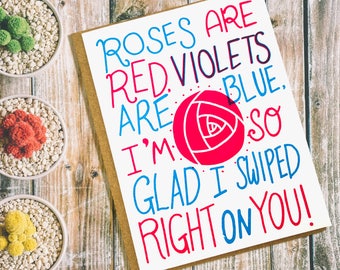 ROSES ARE
RED, VIOLETS
ARE BLUE,
I'M SO
GLAD I SWIPED
RIGHT ON YOU!